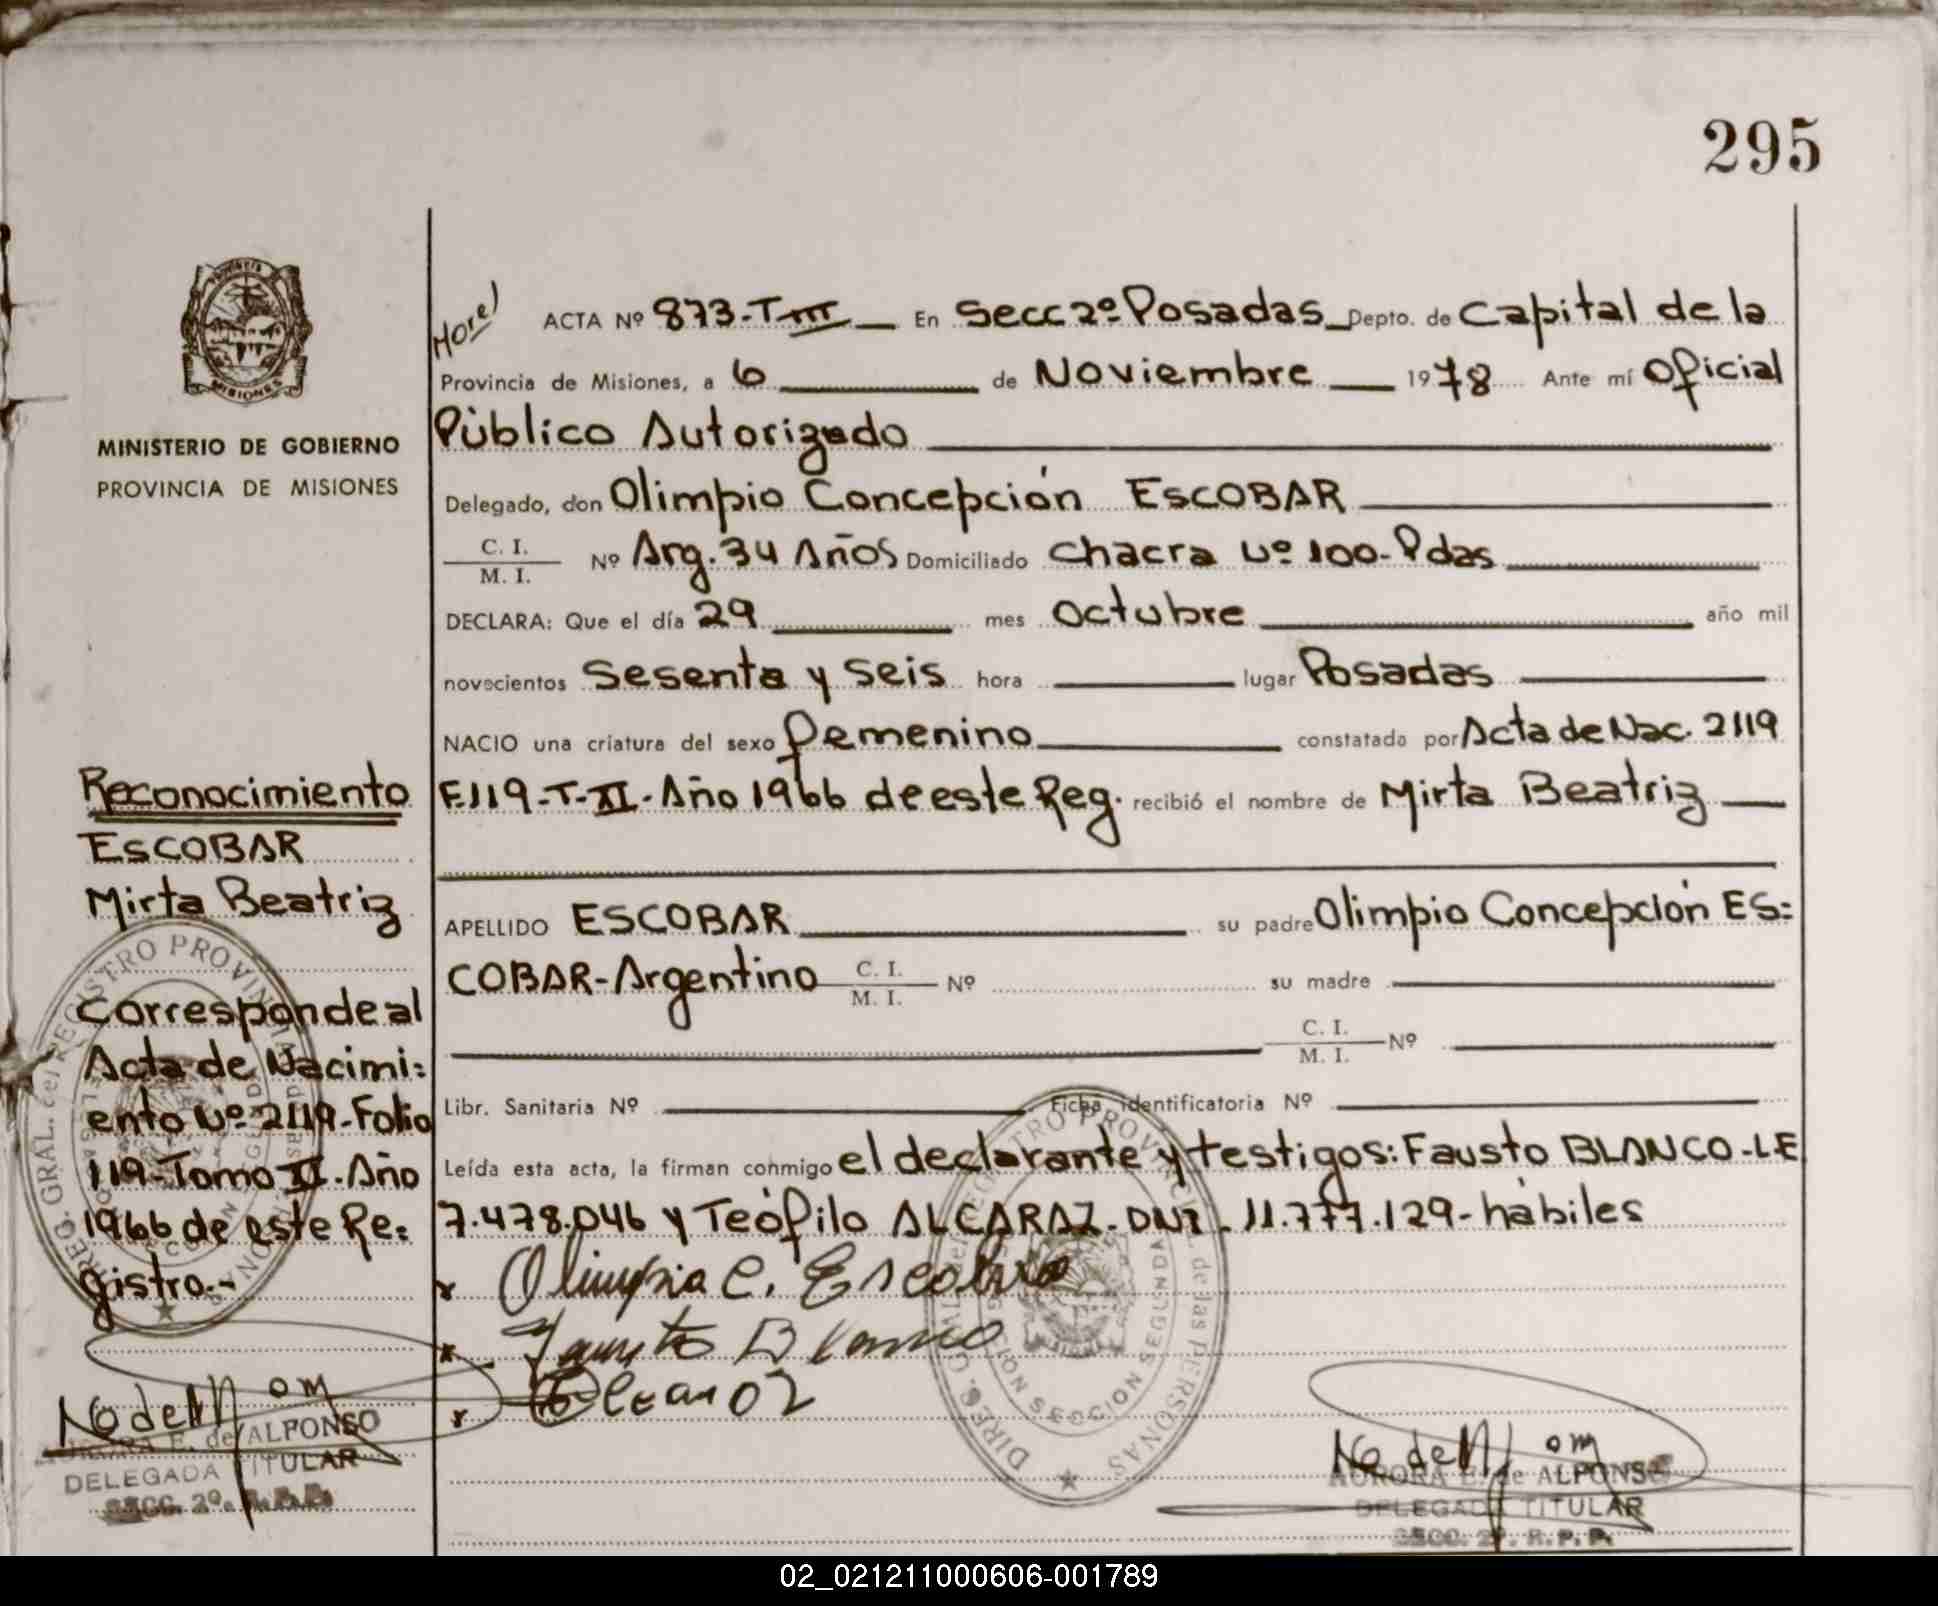 295
MISIONES
MINISTERIO DE GOBIERNO
PROVINCIA DE MISIONES
Reconocimiento
ESCOBAR
Mirta Beatriz
Corresponde al
Acta de Nacimi=
ento Nº 2119-Folio
119-Tomo II. Año
1966 de este Re=
gistro.-
E. de ALFONSO
DELEGADA TITULAR
SECC. 2º. R.P.P.
ACTA Nº 873-T III En Secc 2º Posadas Depto. de Capital de la
Provincia de Misiones, a 6 de Noviembre 1978 Ante mí Oficial
Público Autorizado
Delegado, don Olimpio Concepción ESCOBAR
C. I.
M. I. Nº Arg. 34 Años Domiciliado Chacra Nº 100-Pdas
DECLARA: Que el día 29 mes Octubre año mil
novecientos Sesenta y Seis hora lugar Posadas
NACIO una criatura del sexo Femenino constatada por Acta de Nac. 2119
F.119-T-XI-Año 1966 de este Reg. recibió el nombre de Mirta Beatriz
APELLIDO ESCOBAR su padre Olimpio Concepción ES=
COBAR-Argentino C. I. M. I. Nº su madre
C. I. M. I. Nº
Libr. Sanitaria Nº Ficha identificatoria Nº
Leída esta acta, la firman conmigo el declarante y testigos: Fausto BLANCO-LE
7.478.046 y Teófilo ALCARAZ-DNI-11.777.129-hábiles
Olimpio C. Escobar
Fausto Blanco
DIREC. GRAL. del REGISTRO PROVINCIAL de las PERSONAS
SECCION SEGUNDA
AURORA E. de ALFONSO
DELEGADA TITULAR
SECC. 2º. R.P.P.
02_021211000606-001789